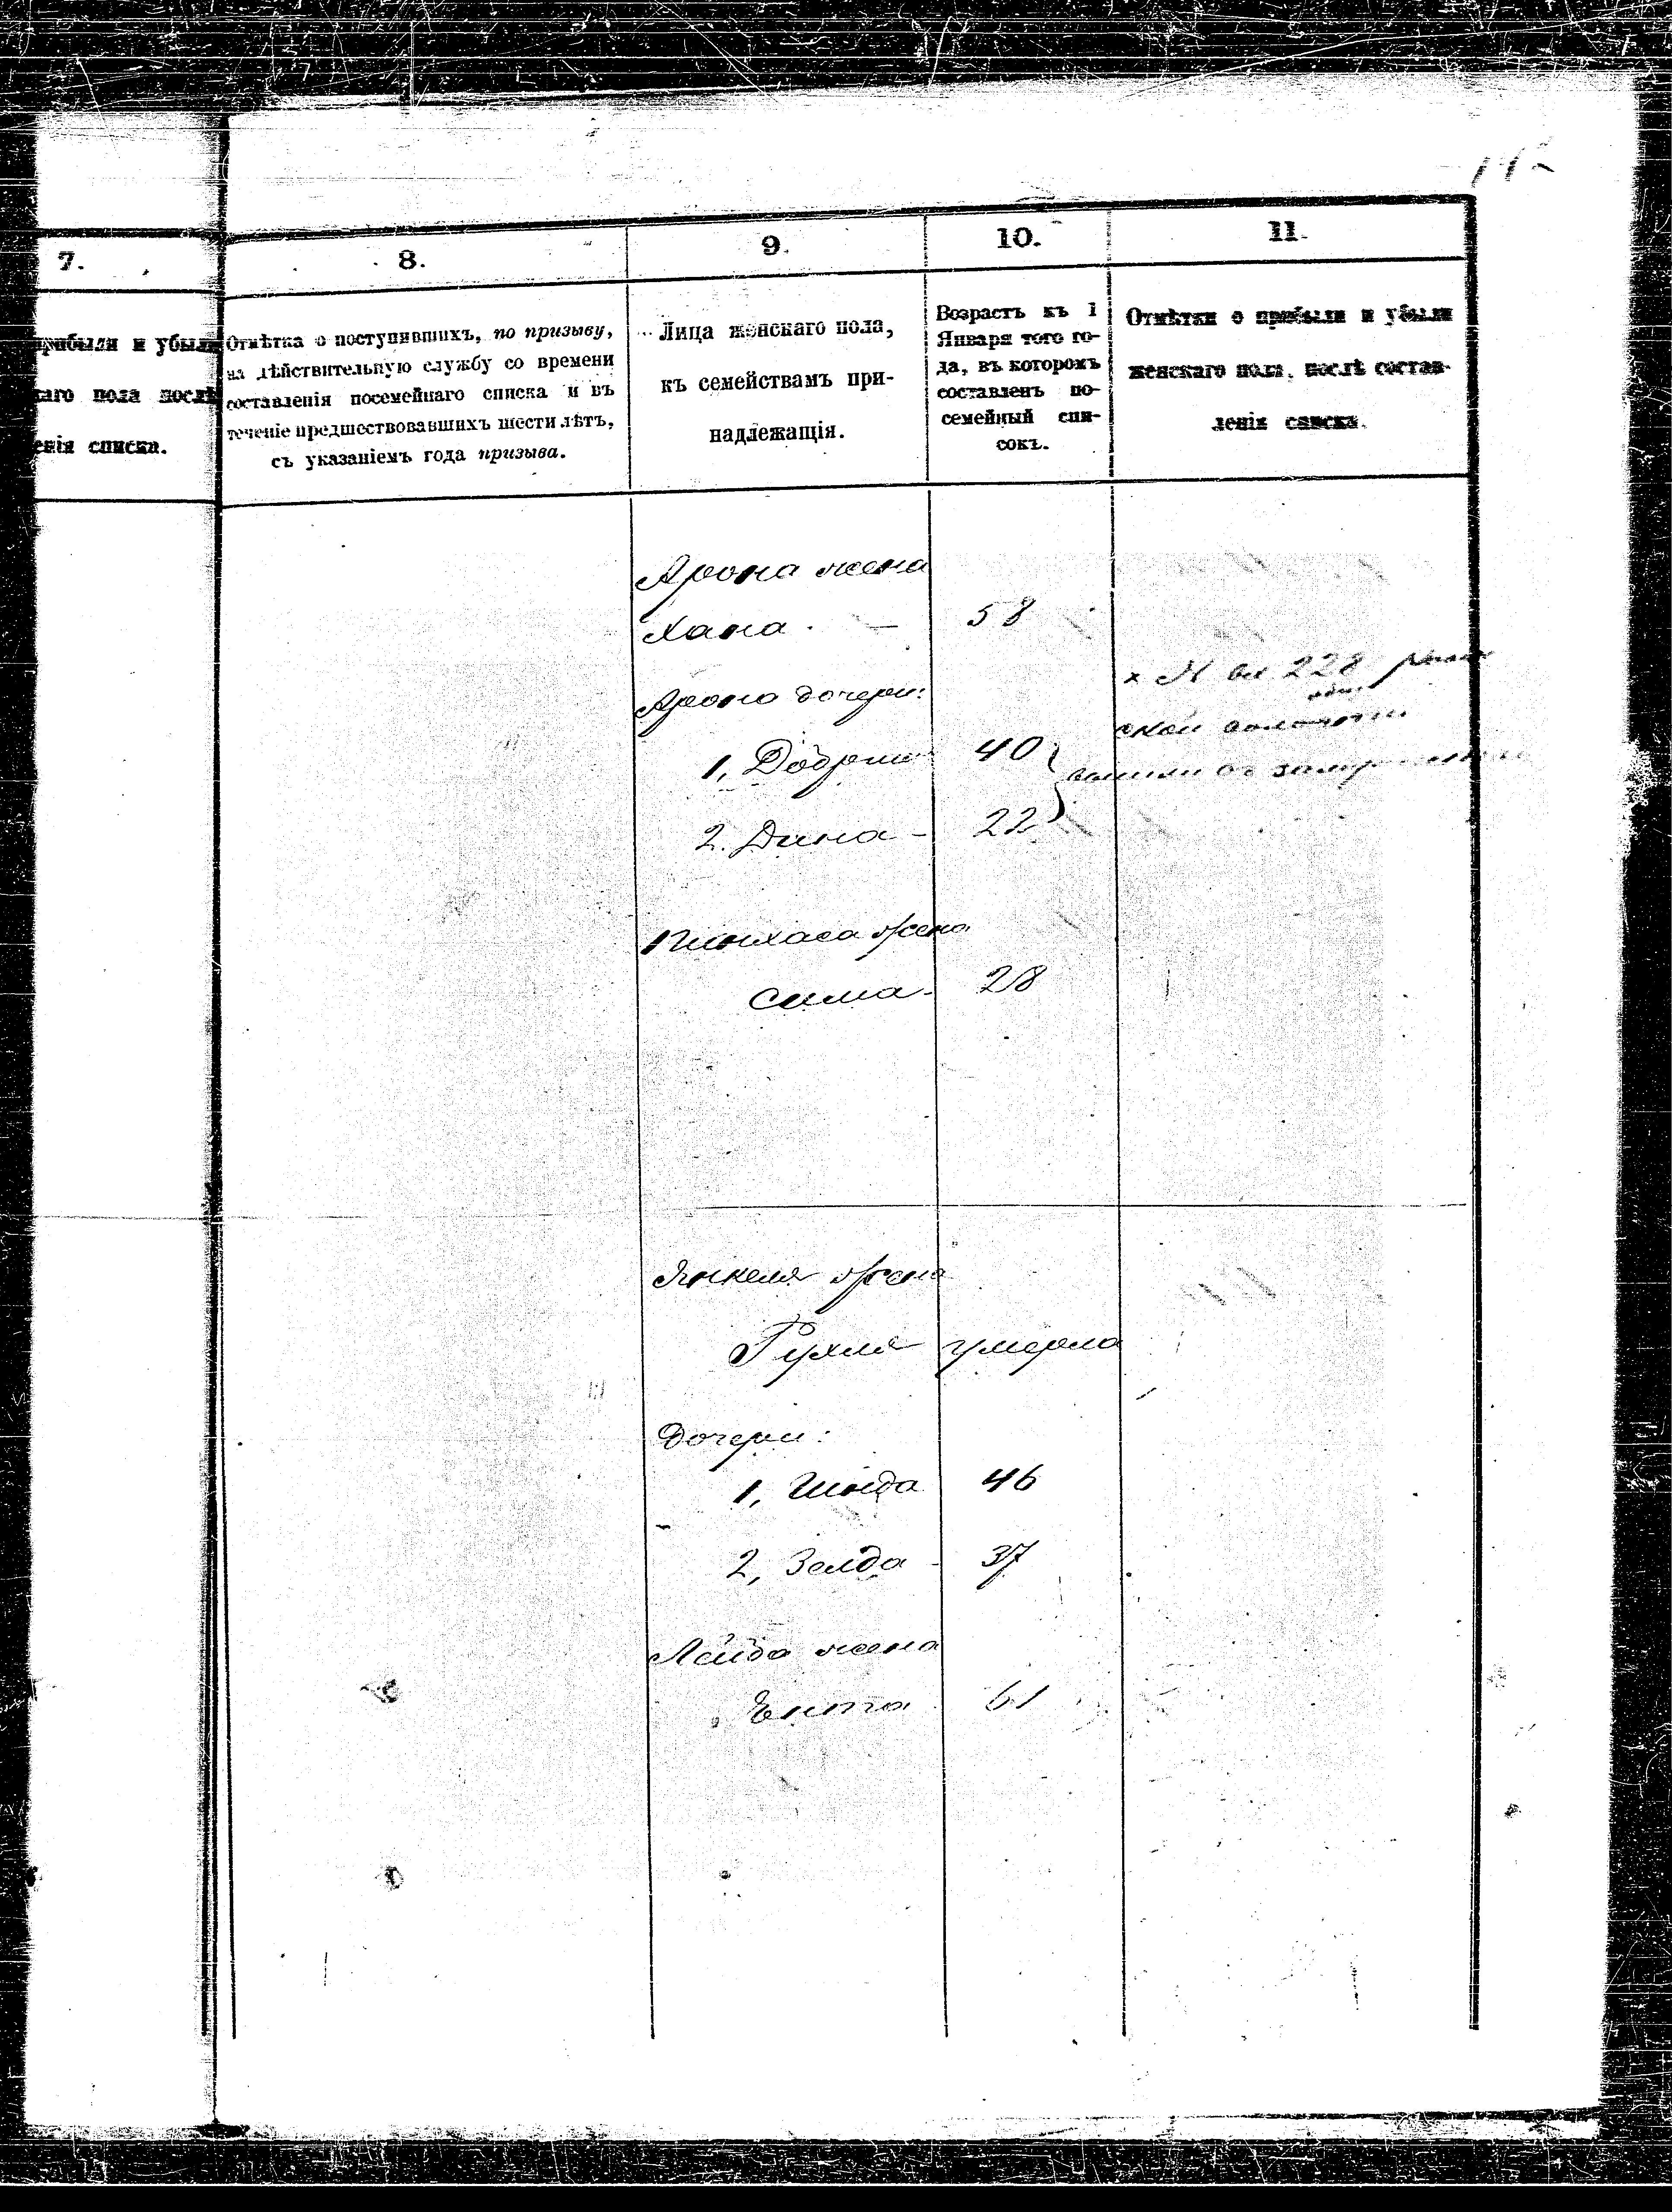 142
7.
8.
9.
10.
11.
прибыли и убыли
каго пола послѣ
енія списка.
Отмѣтка о поступившихъ, по призыву,
на дѣйствительную службу со времени
составленія посемейнаго списка и въ
теченіе предшествовавшихъ шести лѣтъ,
съ указаніемъ года призыва.
Лица женскаго пола,
къ семействамъ при-
надлежащія.
Возрастъ къ 1
Января того го-
да, въ которомъ
составленъ по-
семейный спи-
сокъ.
Отмѣтки о прибыли и убыли
женскаго пола, послѣ состав-
ленія списка.
Арона жена
Хана - 58
Арона дочери:
1, Добрыш 40
2. Дина - 22
х 228
вышли
Пинхаса жена
Сима - 28
Янкеля жена
Рухля умерла
Дочери:
1, Гинда 46
2, Зелда - 37
Лейба жена
Ента 61